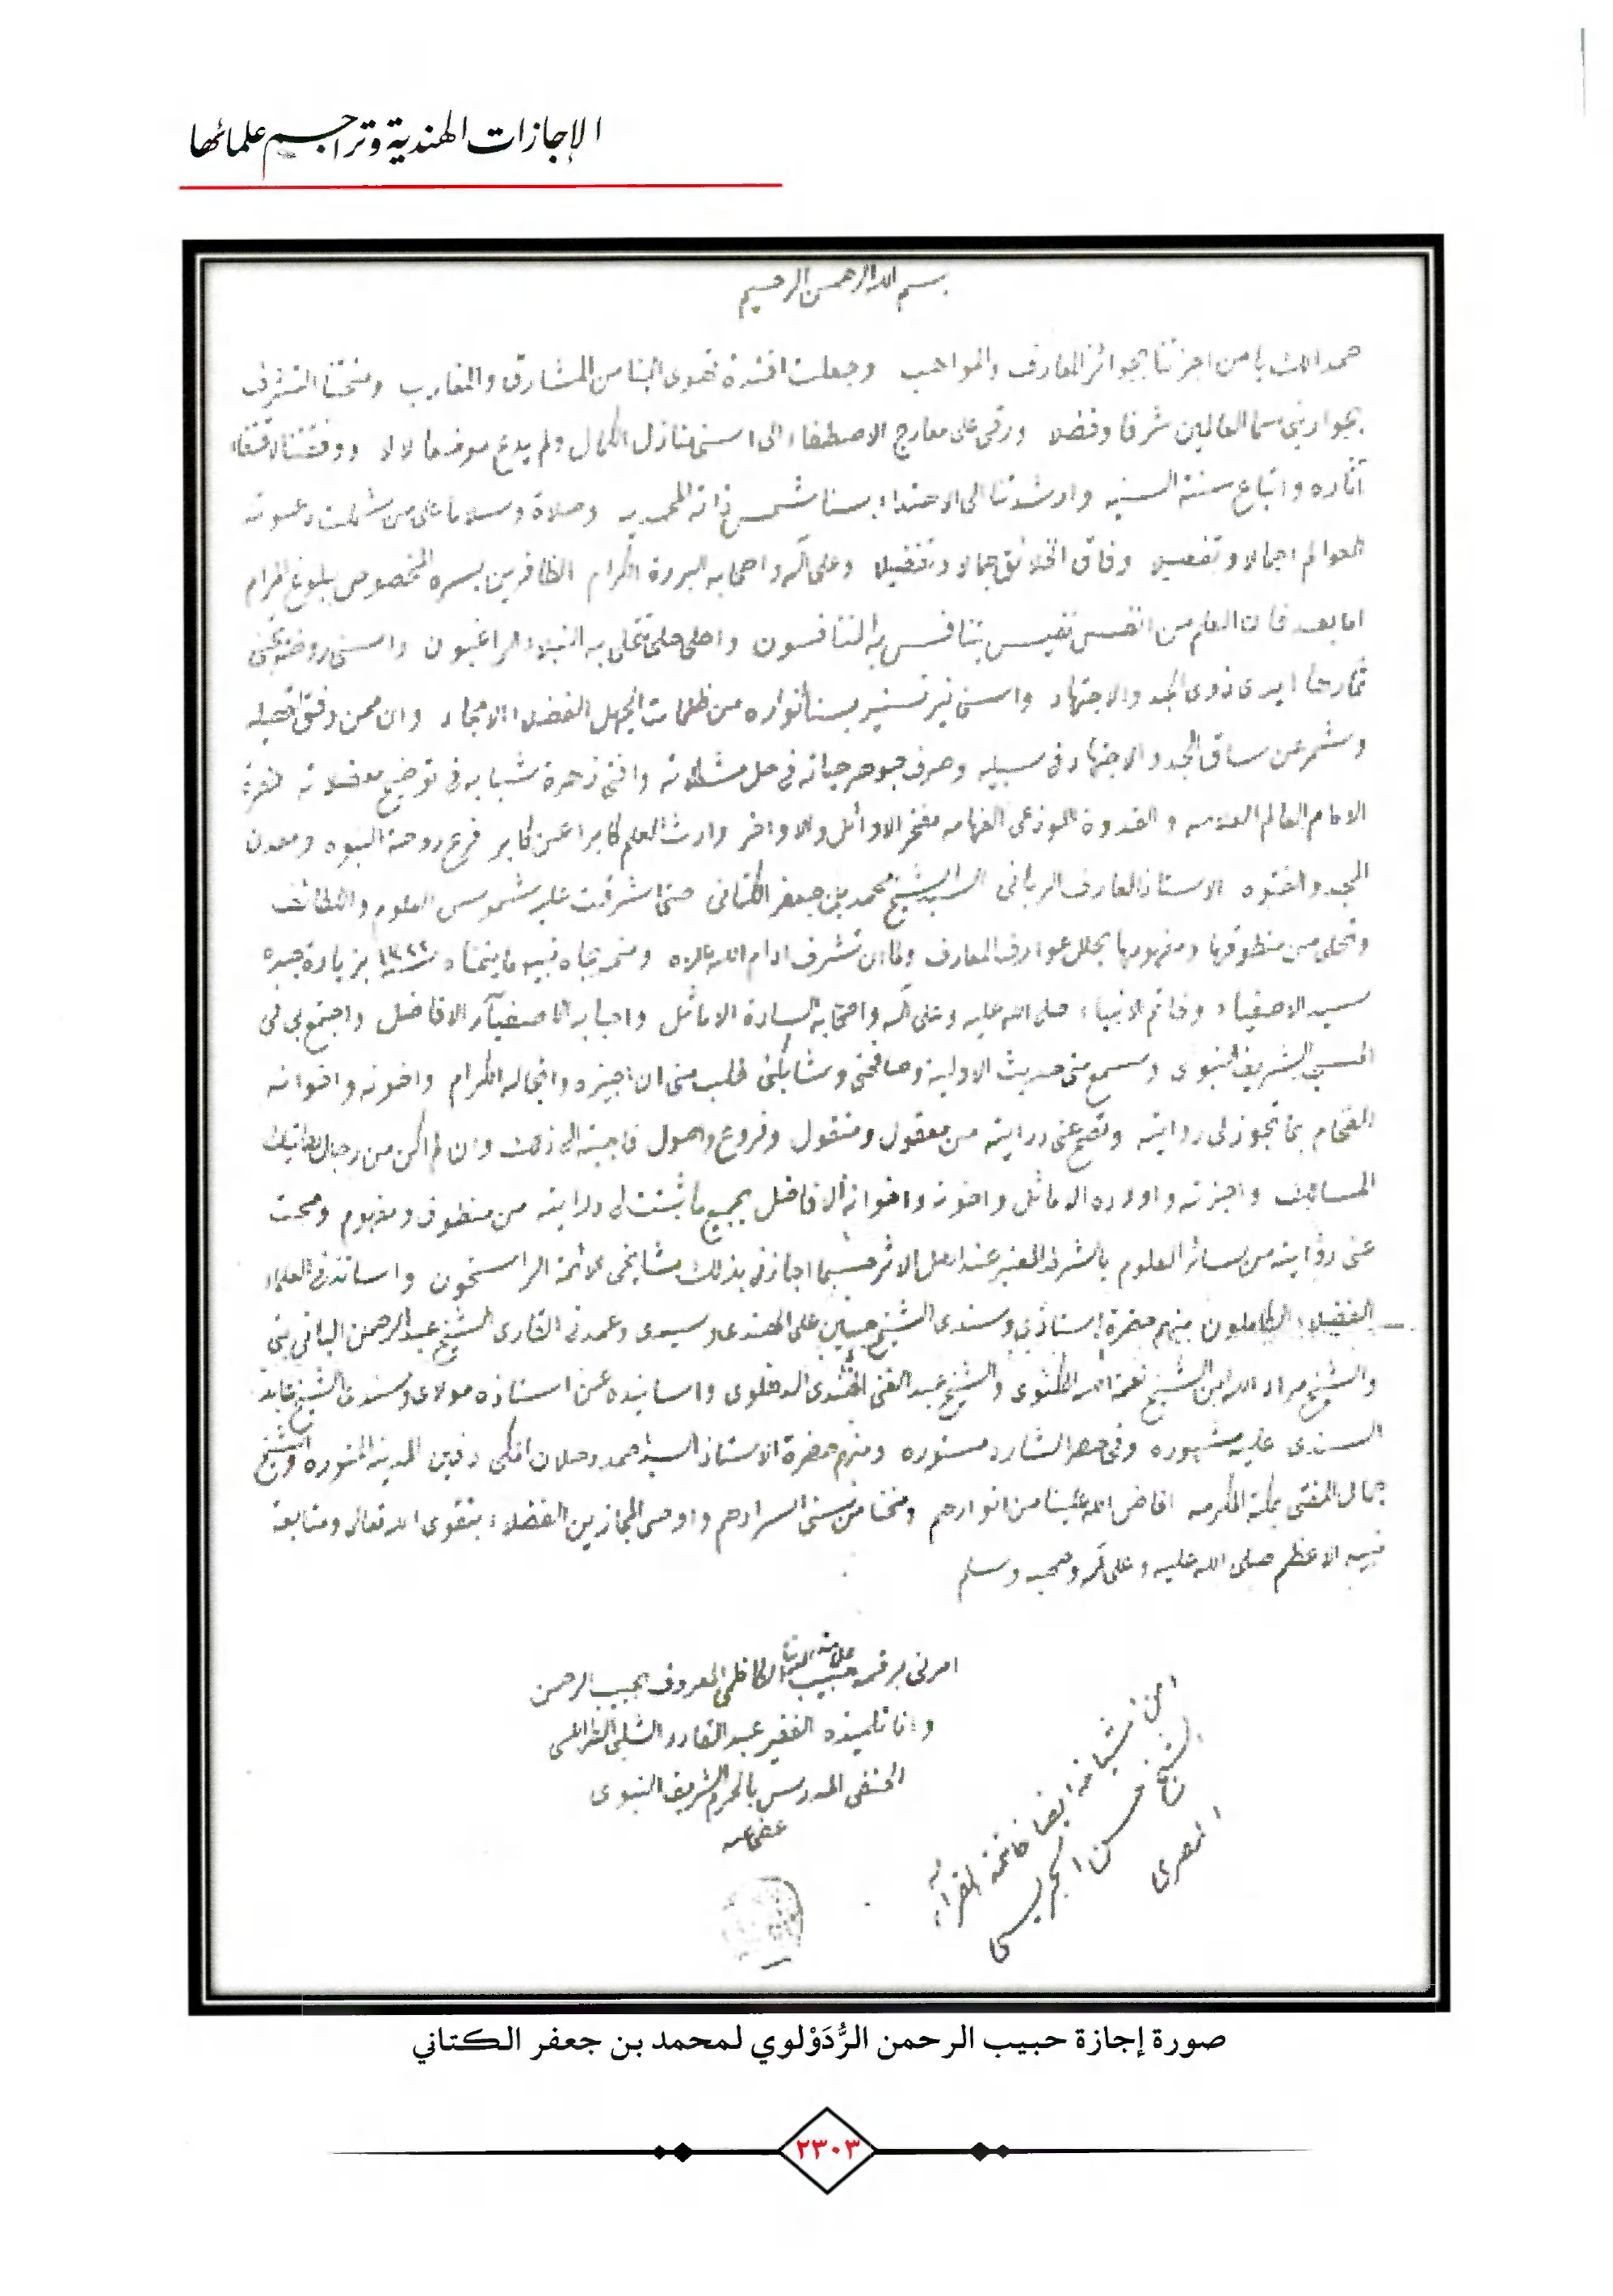 الإجازات الهندية وتراجم علمائها
بسم الله الرحمن الرحيم
حمدا لك يا من اجزتنا بجوائز المعارف والمواهب وجعلت افئدة تهوى الينا من المشارق والمغارب ومنحتنا التشرف
بجوار نبي سما العالمين شرفا وفضلا ورقى على معارج الاصطفاء الى اسنى منازل الكمال ولم يدع موضعا لالا ووفقتنا لاقتفاء
آثاره واتباع سنته السنيه وارشدتنا الى الاهتداء بسنا شمس ذاته المحمديه وصلاة وسلاما على من شملت دعوته
العوالم اجمالا وتفصيلا وفاق الخلائق جمالا وتفضيلا وعلى آله واصحابه البررة الكرام الظافرين بسره المخصوص ببلوغ المرام
اما بعد فان العلم من انفس نفيس يتنافس به المتنافسون واحلى حلي تتحلى به النبلاء الراغبون واسنى روضة تجنى
ثمارها ايدى ذوى الجد والاجتهاد واسنى نير تستنير بسنا انواره من ظلمات الجهل الفضلاء الامجاد وان ممن وفق لتحصيله
وشمر عن ساق الجد والاجتهاد فى سبيله وصرف جوهر حياته فى حل مشكلاته وافنى زهرة شبابه فى توضيح معضلاته حضرة
الامام العالم العلامه والقدوة اللوذعى الفهامه مفخر الاوائل والاواخر وارث العلم كابرا عن كابر فرع دوحة النبوه ومعدن
المجد والفتوه الاستاذ العارف الربانى السيد الشيخ محمد بن جعفر الكتانى حتى اشرقت عليه شموس العلوم واللطائف
وتحلى من منطوقها ومفهومها بحلل عوارف المعارف ولما ان تشرف ادام الله علاه ومنحه بجاه نبيه ما يتمناه سنة ١٣٢٢ بزيارة جده
سيد الاصفياء وخاتم الانبياء صلى الله عليه وعلى آله واصحابه السادة الاماثل واحبابه الاصفيآء الافاضل واجتمع بى فى
المسجد الشريف النبوى وسمع منى حديث الاولية وصافحنى وشابكنى طلب منى ان اجيزه وانجاله الكرام واخوته واخوانه
الفخام بما تجوز لى روايته وتصح عنى درايته من معقول ومنقول وفروع واصول فاجبته الى ذلك وان لم اكن من رجال هاتيك
المسالك واجزته واولاده الاماثل واخوته واخوانه الافاضل بجميع ما ثبتت لى درايته من منطوق ومفهوم وصحت
عنى روايته من سائر العلوم بالشرط المعتبر عند اهل الاثر حسبما اجازنى بذلك مشايخى الائمة الراسخون واساتذتى العلماء
الفضلاء الكاملون منهم حضرة استاذي وسندى الشيخ حسين على الهندى وسيدى وعمدتى القارى الشيخ عبد الرحمن البانى بتى
والشيخ مراد الله ابن الشيخ نعمة الله اللكنوى والشيخ عبد الغنى النقشبندى الدهلوى واسانيده عن استاذه مولاى وسندى الشيخ عابد
السندى عليه مشهوره وفى حصر الشارد مسنوره ومنهم حضرة الاستاذ السيد احمد دحلان المكى دفين المدينة المنوره والشيخ
جمال المفتى بمكة المكرمه افاض الله علينا من انوارهم ومنحنا من سنى اسرارهم واوصى المجازين الفضلاء بتقوى الله تعالى ومتابعة
نبيه الاعظم صلى الله عليه وعلى آله وصحبه وسلم
امرنى برقمه حبيب الكاظمى المعروف بحبيب الرحمن
وانا تلميذه الفقير عبد القادر الشلبى الطرابلسى
الحنفى المدرس بالحرم الشريف النبوى
عفى عنه
من مشايخه ايضا خاتمة القراء
الشيخ حسن الجريسى
المصرى
صورة إجازة حبيب الرحمن الرُّدَوْلوي لمحمد بن جعفر الكتاني
٢٣٠٣